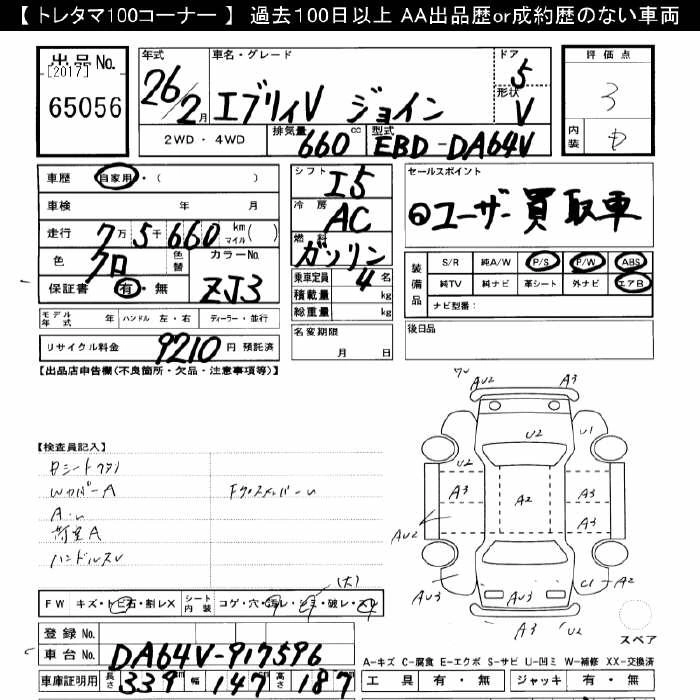 【 トレタマ100コーナー 】 過去100日以上 AA出品歴or成約歴のない車両
出品No.
[2017]
65056
年式 26/2月
車名・グレード エブリィV ジョイン
ドア 5
形状 V
2WD ・ 4WD
排気量 660 cc
型式 EBD-DA64V
評価点 3
内装
車歴 自家用・( )
車検 年 月
走行 7万5千660 km マイル( )
色 クロ
色替
カラーNo. ZJ3
保証書 有・無
シフト I5
冷房 AC
燃料 ガソリン
乗車定員 4名
積載量 kg
総重量 kg
セールスポイント
ユーザー買取車
装備品
S/R 純A/W P/S P/W ABS
純TV 純ナビ 革シート 外ナビ エアB
ナビ型番:
モデル年式 年 ハンドル 左・右 ディーラー・並行
名変期限 月 日
後日品
リサイクル料金 9210 円 預託済
【出品店申告欄(不良箇所・欠品・注意事項等)】
AU2 A3
U2 U1
U2
A3 A2 A3
AU2 A3
【検査員記入】
WカバーA
荷室A
AU3 A3 C1 A2
A3 U2 AU3
スペア
(大)
FW キズ・トビ石・割レX シート内装 コゲ・穴・汚レ・シミ・破レ・スレ
登録No.
車台No. DA64V-917596
車庫証明用 長さ 339 幅 147 高さ 187
A-キズ C-腐食 E-エクボ S-サビ U-凹ミ W-補修 XX-交換済
工具 有・無 ジャッキ 有・無